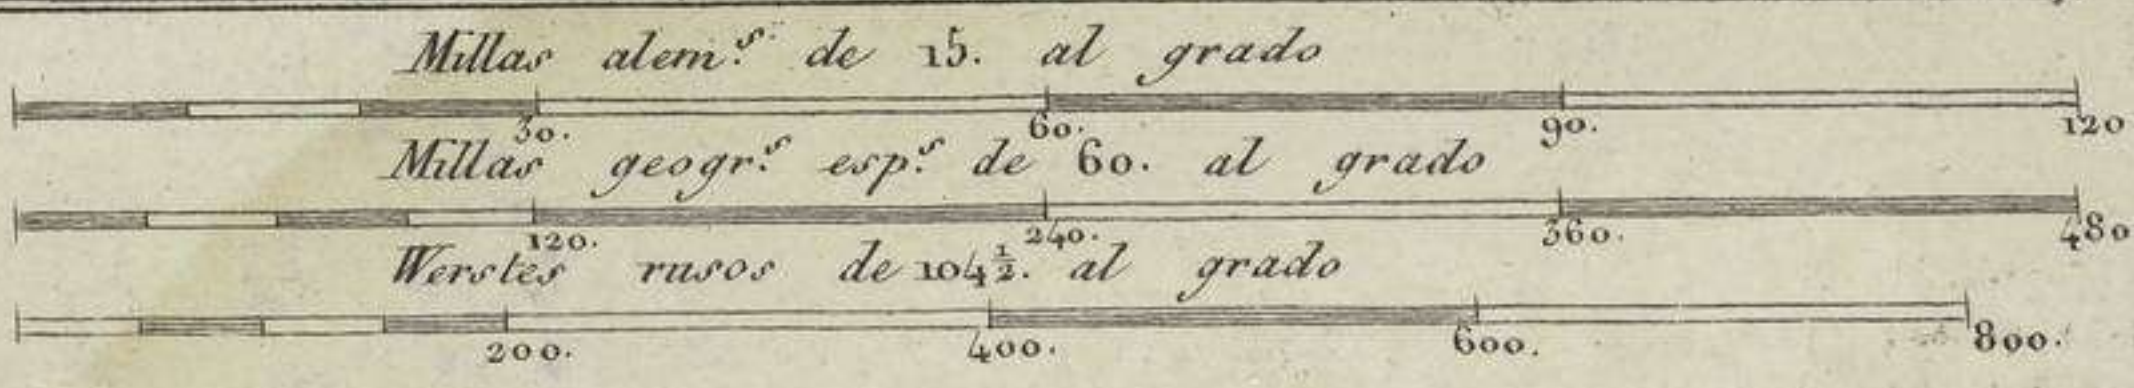 Millas alem.ˢ de 15. al grado
30. 60. 90. 120
Millas geogr.ˢ esp.ˢ de 60. al grado
120. 240. 360. 480
Werstes rusos de 104½. al grado
200. 400. 600. 800.